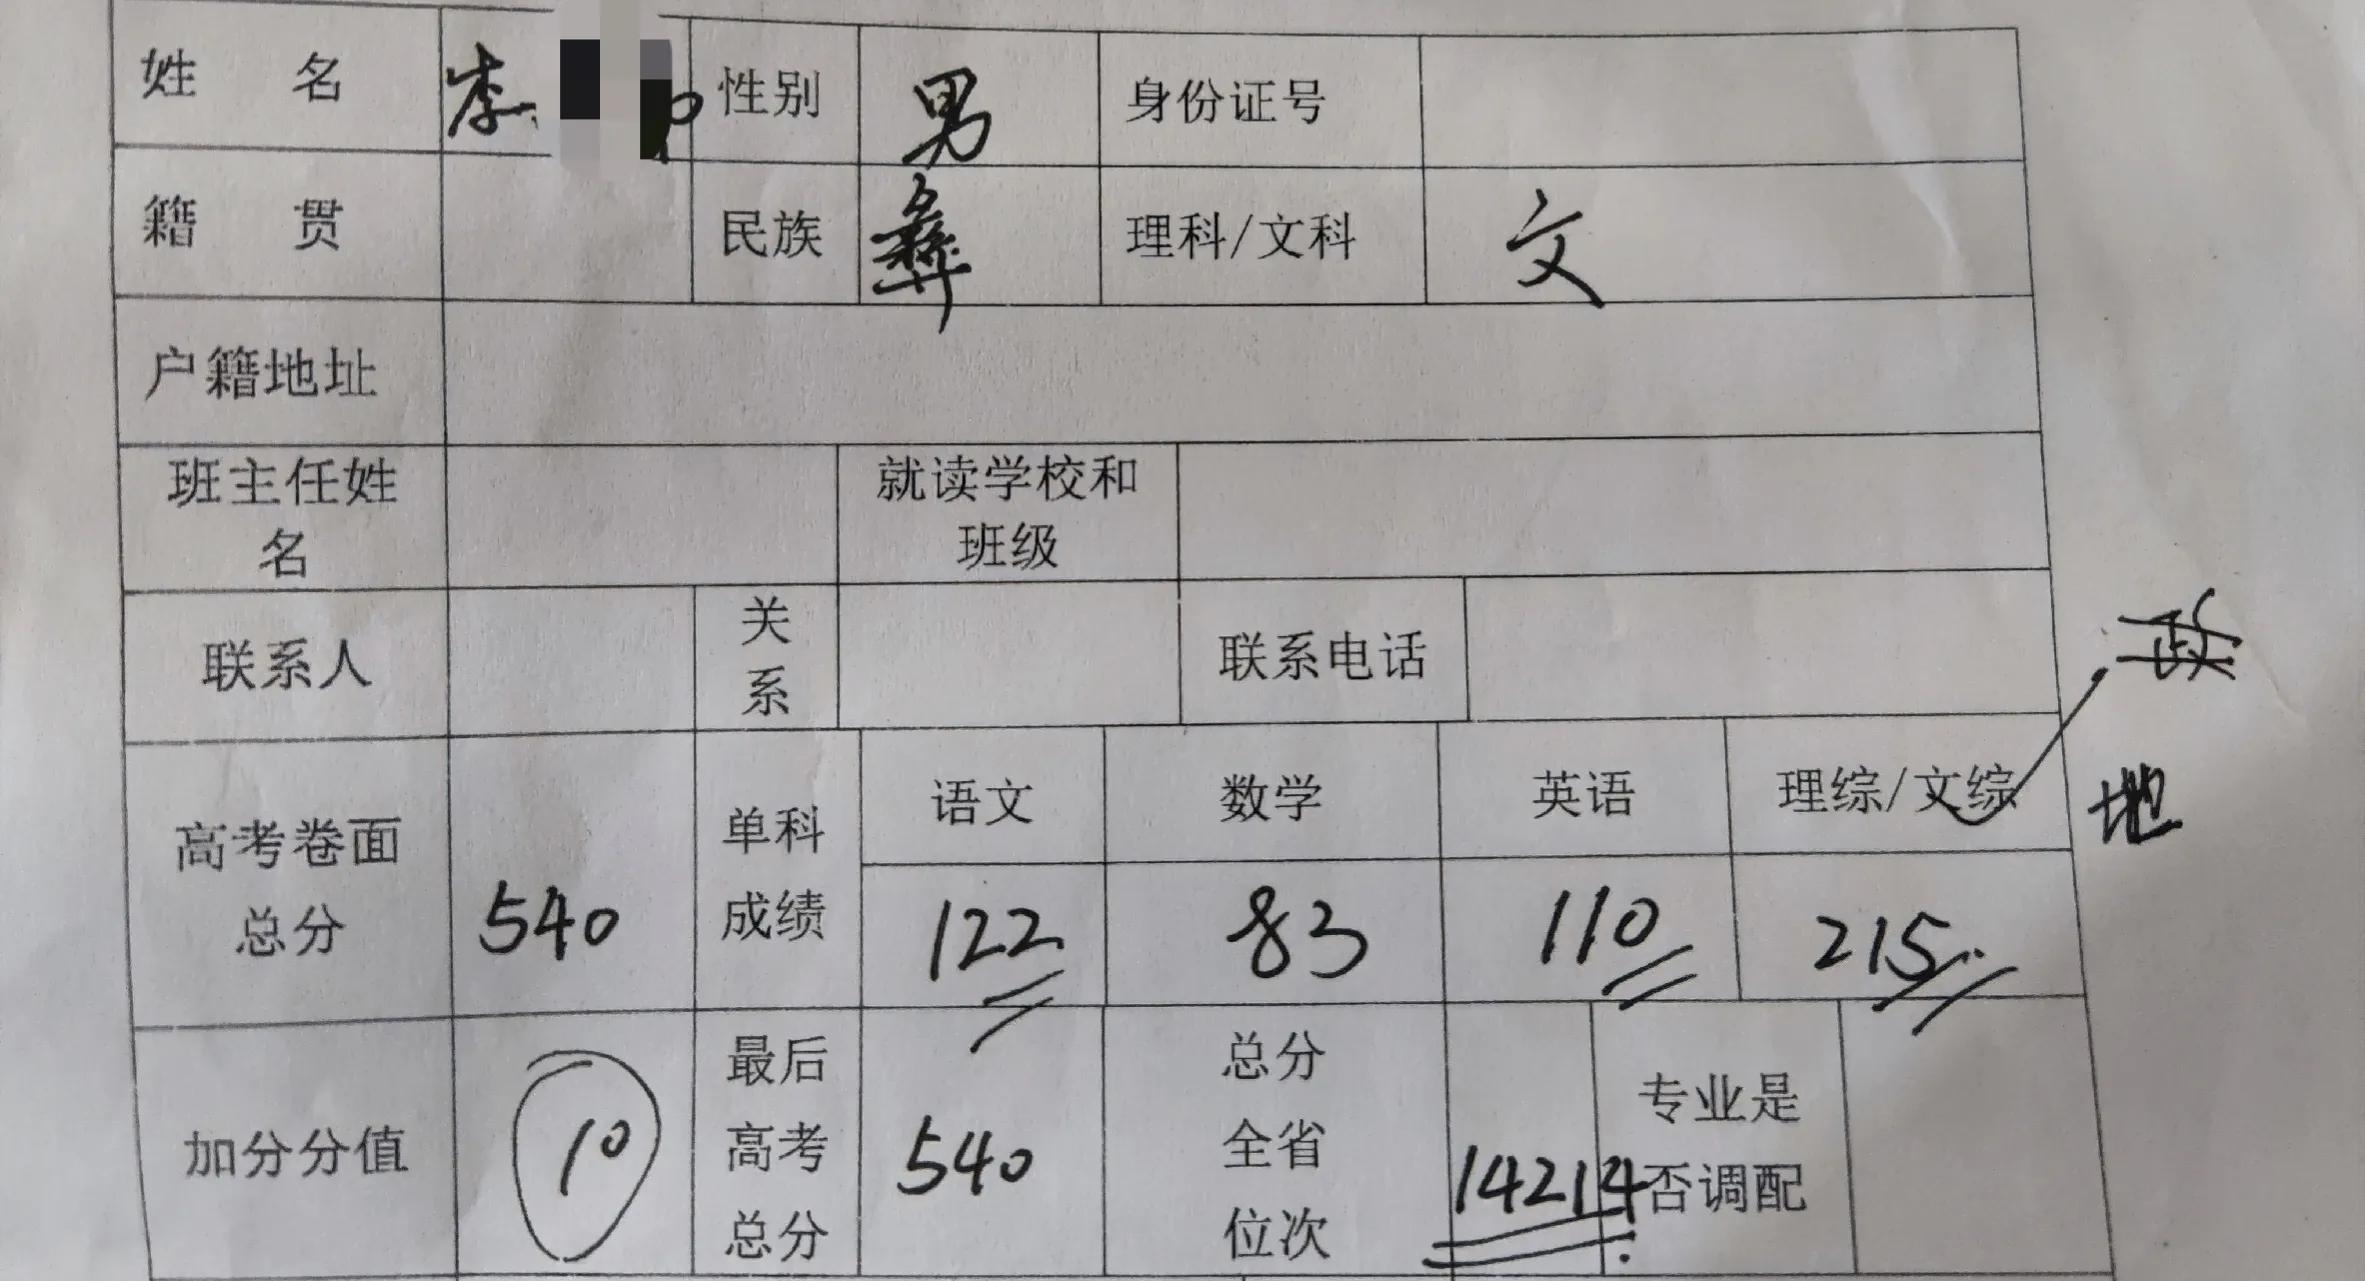 姓 名 李 性别 男 身份证号
籍 贯 民族 彝 理科/文科 文
户籍地址
班主任姓名 就读学校和班级
联系人 关系 联系电话
政
高考卷面总分 540 单科成绩 语文 数学 英语 理综/文综 地
122 83 110 215
加分分值 10 最后高考总分 540 总分全省位次 14214 专业是否调配